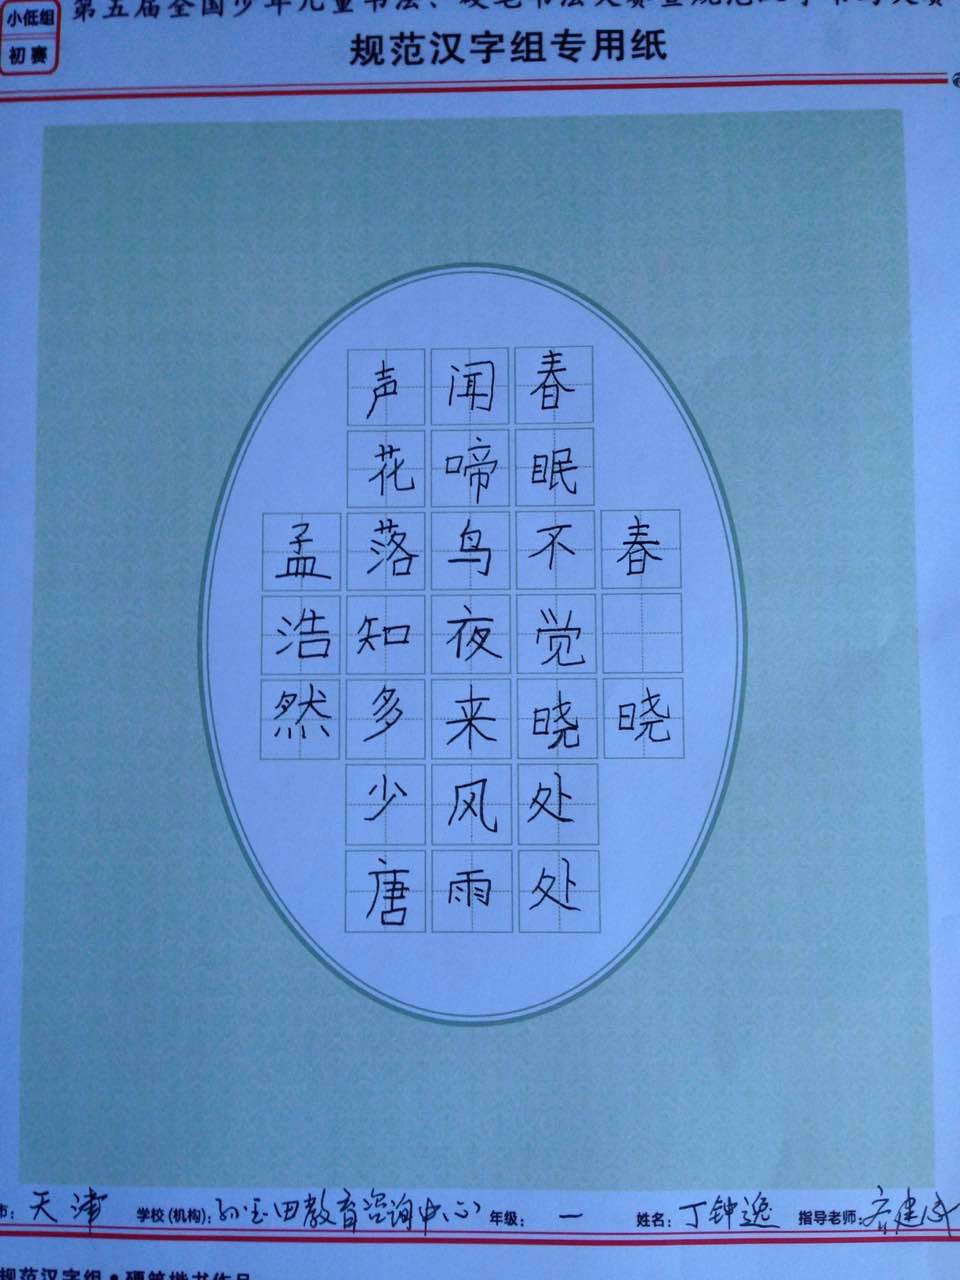 小低组
初赛
第五届全国少年儿童书法、硬笔书法大赛暨规范汉字书写大赛
规范汉字组专用纸
春
晓
春眠不觉晓处处
闻啼鸟夜来风雨
声花落知多少唐
孟浩然
市：天津 学校(机构)：教育咨询中心 年级：一 姓名：丁钟逸 指导老师：
规范汉字组·硬笔楷书作品